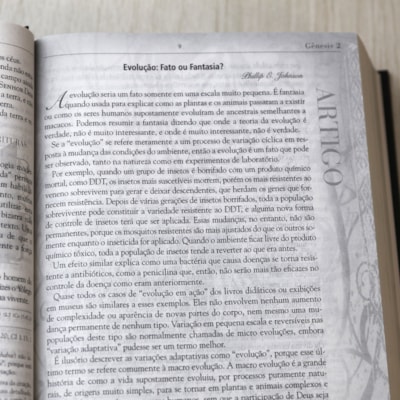 9
Gênesis 2
Evolução: Fato ou Fantasia?
Phillip E. Johnson
A evolução seria um fato somente em uma escala muito pequena. É fantasia
quando usada para explicar como as plantas e os animais passaram a existir
ou como os seres humanos supostamente evoluíram de ancestrais semelhantes a
macacos. Podemos resumir a fantasia dizendo que onde a teoria da evolução é
verdade, não é muito interessante, e onde é muito interessante, não é verdade.
Se a “evolução” se refere meramente a um processo de variação cíclica em res-
posta à mudança das condições do ambiente, então a evolução é um fato que pode
ser observado, tanto na natureza como em experimentos de laboratório.
Por exemplo, quando um grupo de insetos é borrifado com um produto químico
mortal, como DDT, os insetos mais suscetíveis morrem, porém os mais resistentes ao
veneno sobrevivem para gerar e deixar descendentes, que herdam os genes que for-
necem resistência. Depois de várias gerações de insetos borrifados, toda a população
sobrevivente pode constituir a variedade resistente ao DDT, e alguma nova forma
de controle de insetos terá que ser aplicada. Essas mudanças, no entanto, não são
permanentes, porque os mosquitos resistentes são mais ajustados do que os outros so-
mente enquanto o inseticida for aplicado. Quando o ambiente ficar livre do produto
químico tóxico, toda a população de insetos tende a reverter ao que era antes.
Um efeito similar explica como uma bactéria que causa doenças se torna resis-
tente a antibióticos, como a penicilina que, então, não serão mais tão eficazes no
controle da doença como eram anteriormente.
Quase todos os casos de “evolução em ação” dos livros didáticos ou exibições
em museus são similares a esses exemplos. Eles não envolvem nenhum aumento
de complexidade ou aparência de novas partes do corpo, nem mesmo uma mu-
dança permanente de nenhum tipo. Variação em pequena escala e reversíveis nas
populações deste tipo são normalmente chamadas de micro evoluções, embora
“variação adaptativa” pudesse ser um termo melhor.
É ilusório descrever as variações adaptativas como “evolução”, porque esse úl-
timo termo se refere comumente à macro evolução. A macro evolução é a grande
história de como a vida supostamente evoluiu, por processos puramente natu-
rais, de origens muito simples, para se tornar em plantas e animais complexos e
sem que a participação de Deus seja
ARTIGO